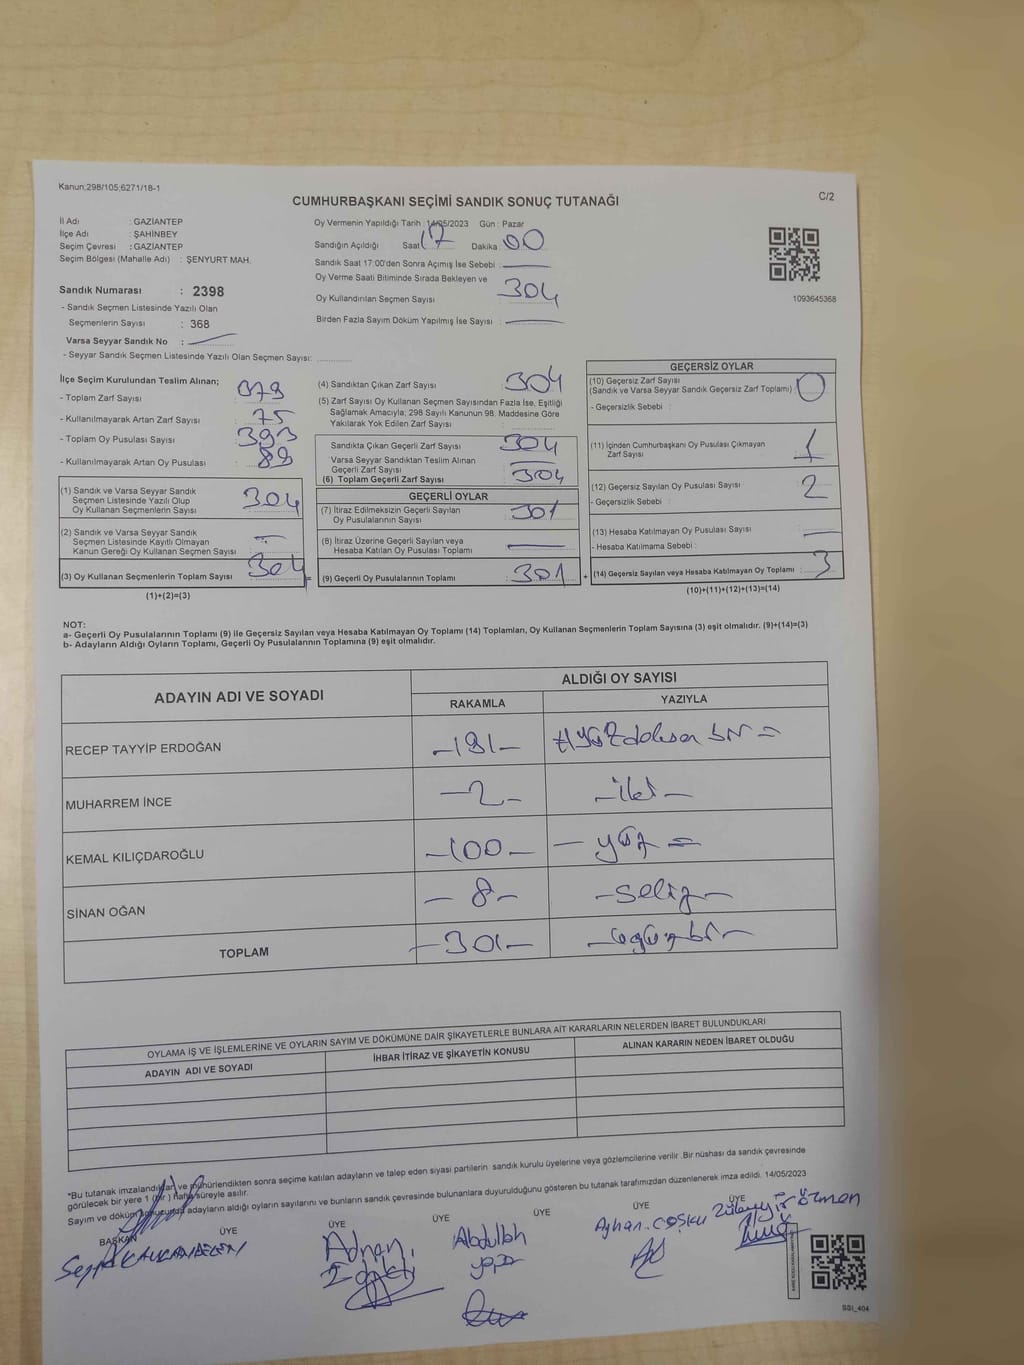 Kanun;298/105;6271/18-1
CUMHURBAŞKANI SEÇİMİ SANDIK SONUÇ TUTANAĞI
C/2
İl Adı : GAZİANTEP
İlçe Adı : ŞAHİNBEY
Seçim Çevresi : GAZİANTEP
Seçim Bölgesi (Mahalle Adı) : ŞENYURT MAH.
Sandık Numarası : 2398
- Sandık Seçmen Listesinde Yazılı Olan
Seçmenlerin Sayısı : 368
Varsa Seyyar Sandık No :
- Seyyar Sandık Seçmen Listesinde Yazılı Olan Seçmen Sayısı:
Oy Vermenin Yapıldığı Tarih : 14/05/2023 Gün : Pazar
Sandığın Açıldığı Saat 17 Dakika 00
Sandık Saat 17:00'den Sonra Açımış İse Sebebi :
Oy Verme Saati Bitiminde Sırada Bekleyen ve
Oy Kullandırılan Seçmen Sayısı : 304
Birden Fazla Sayım Döküm Yapılmış İse Sayısı :
1093645368
İlçe Seçim Kurulundan Teslim Alınan;
- Toplam Zarf Sayısı : 379
- Kullanılmayarak Artan Zarf Sayısı : 75
- Toplam Oy Pusulası Sayısı : 393
- Kullanılmayarak Artan Oy Pusulası : 89
(1) Sandık ve Varsa Seyyar Sandık
Seçmen Listesinde Yazılı Olup
Oy Kullanan Seçmenlerin Sayısı 304
(2) Sandık ve Varsa Seyyar Sandık
Seçmen Listesinde Kayıtlı Olmayan
Kanun Gereği Oy Kullanan Seçmen Sayısı
(3) Oy Kullanan Seçmenlerin Toplam Sayısı 304
(1)+(2)=(3)
(4) Sandıktan Çıkan Zarf Sayısı 304
(5) Zarf Sayısı Oy Kullanan Seçmen Sayısından Fazla İse, Eşitliği
Sağlamak Amacıyla; 298 Sayılı Kanunun 98. Maddesine Göre
Yakılarak Yok Edilen Zarf Sayısı
Sandıkta Çıkan Geçerli Zarf Sayısı 304
Varsa Seyyar Sandıktan Teslim Alınan
Geçerli Zarf Sayısı
(6) Toplam Geçerli Zarf Sayısı 304
GEÇERLİ OYLAR
(7) İtiraz Edilmeksizin Geçerli Sayılan
Oy Pusulalarının Sayısı 301
(8) İtiraz Üzerine Geçerli Sayılan veya
Hesaba Katılan Oy Pusulası Toplamı
(9) Geçerli Oy Pusulalarının Toplamı 301
GEÇERSİZ OYLAR
(10) Geçersiz Zarf Sayısı
(Sandık ve Varsa Seyyar Sandık Geçersiz Zarf Toplamı) 0
- Geçersizlik Sebebi :
(11) İçinden Cumhurbaşkanı Oy Pusulası Çıkmayan
Zarf Sayısı 1
(12) Geçersiz Sayılan Oy Pusulası Sayısı 2
- Geçersizlik Sebebi :
(13) Hesaba Katılmayan Oy Pusulası Sayısı
- Hesaba Katılmama Sebebi :
(14) Geçersiz Sayılan veya Hesaba Katılmayan Oy Toplamı 3
(10)+(11)+(12)+(13)=(14)
NOT:
a- Geçerli Oy Pusulalarının Toplamı (9) ile Geçersiz Sayılan veya Hesaba Katılmayan Oy Toplamı (14) Toplamları, Oy Kullanan Seçmenlerin Toplam Sayısına (3) eşit olmalıdır. (9)+(14)=(3)
b- Adayların Aldığı Oyların Toplamı, Geçerli Oy Pusulalarının Toplamına (9) eşit olmalıdır.
ADAYIN ADI VE SOYADI
ALDIĞI OY SAYISI
RAKAMLA YAZIYLA
RECEP TAYYİP ERDOĞAN -191-
MUHARREM İNCE -2- -iki-
KEMAL KILIÇDAROĞLU -100- -yüz=
SİNAN OĞAN -8- -sekiz-
TOPLAM -301- -üçyüzbir-
OYLAMA İŞ VE İŞLEMLERİNE VE OYLARIN SAYIM VE DÖKÜMÜNE DAİR ŞİKAYETLERLE BUNLARA AİT KARARLARIN NELERDEN İBARET BULUNDUKLARI
ADAYIN ADI VE SOYADI İHBAR İTİRAZ VE ŞİKAYETİN KONUSU ALINAN KARARIN NEDEN İBARET OLDUĞU
"Bu tutanak imzalandıktan ve mühürlendikten sonra seçime katılan adayların ve talep eden siyasi partilerin sandık kurulu üyelerine veya gözlemcilerine verilir .Bir nüshası da sandık çevresinde
görülecek bir yere 1 (bir) hafta süreyle asılır.
Sayım ve döküm sonucunda adayların aldığı oyların sayılarını ve bunların sandık çevresinde bulunanlara duyurulduğunu gösteren bu tutanak tarafımızdan düzenlenerek imza edildi. 14/05/2023
BAŞKAN ÜYE ÜYE ÜYE ÜYE ÜYE ÜYE
Adnan Abdullah Ayhan.COŞKU
SSI_404